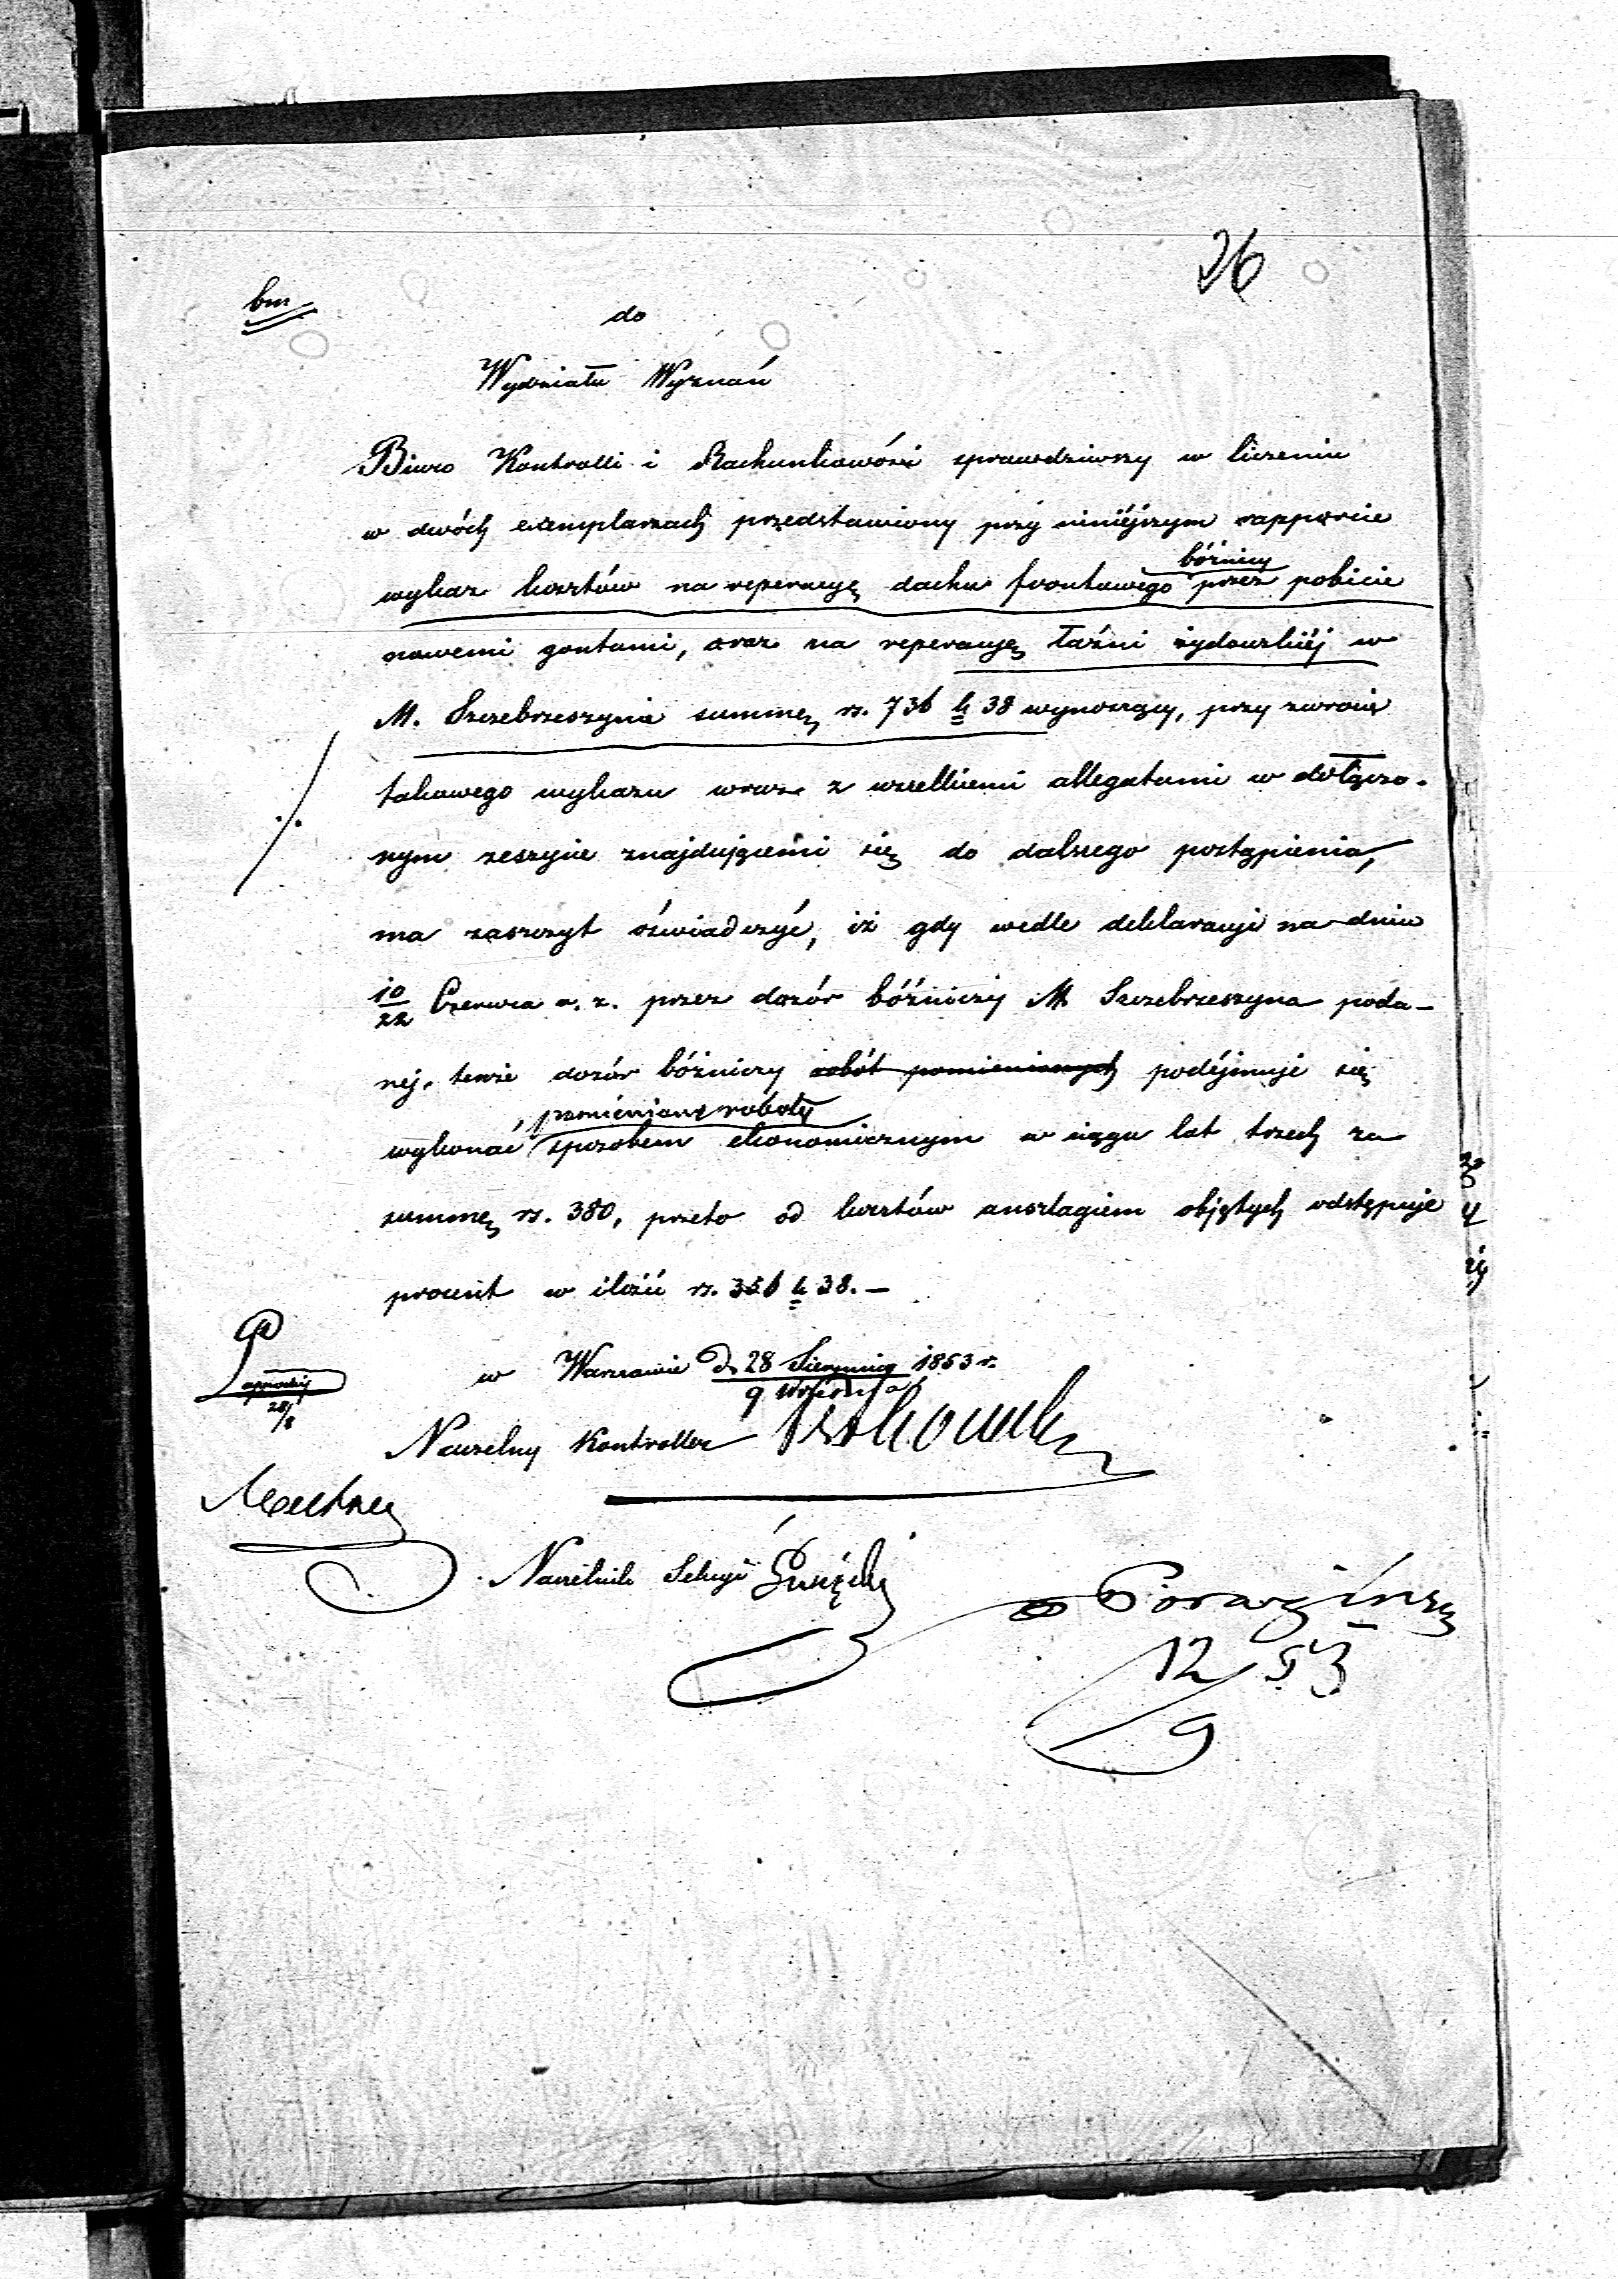 26
bm
do
Wydziału Wyznań
Biuro Kontrolli i Rachunkowości sprawdziwszy w liczeniu
w dwóch exemplarzach przedstawiony przy niniéjszym rapporcie
bóżnicy
wykaz kosztów na reperacyę dachu frontowego przez pobicie
nowemi gontami, oraz na reperacyę łaźni żydowskiéj w
M. Szczebrzeszynie summę rs. 736 k 38 wynoszący, przy zwrocie
takowego wykazu wraz z wszelkiemi allegatami w dołączo-
nym zeszycie znajdującemi się do dalszego postąpienia,
ma zaszczyt oświadczyć, iż gdy wedle deklaracyi na dniu
10/22 Czerwca r. z. przez dozór bóżniczy M. Szczebrzeszyna poda-
nej, tenże dozór bóżniczy robót pomienionych podéjmuje się
pomienione roboty
wykonać sposobem ekonomicznym w ciągu lat trzech za
summę rs. 380, przeto od kosztów anszlagiem objętych odstępuje
procent w ilości rs. 356 k 38.—
w Warszawie d. 28 Sierpnia 1853 r.
9 Września
28/8
Naczelny Kontroller
Naczelnik Sekcyi
12/9 53